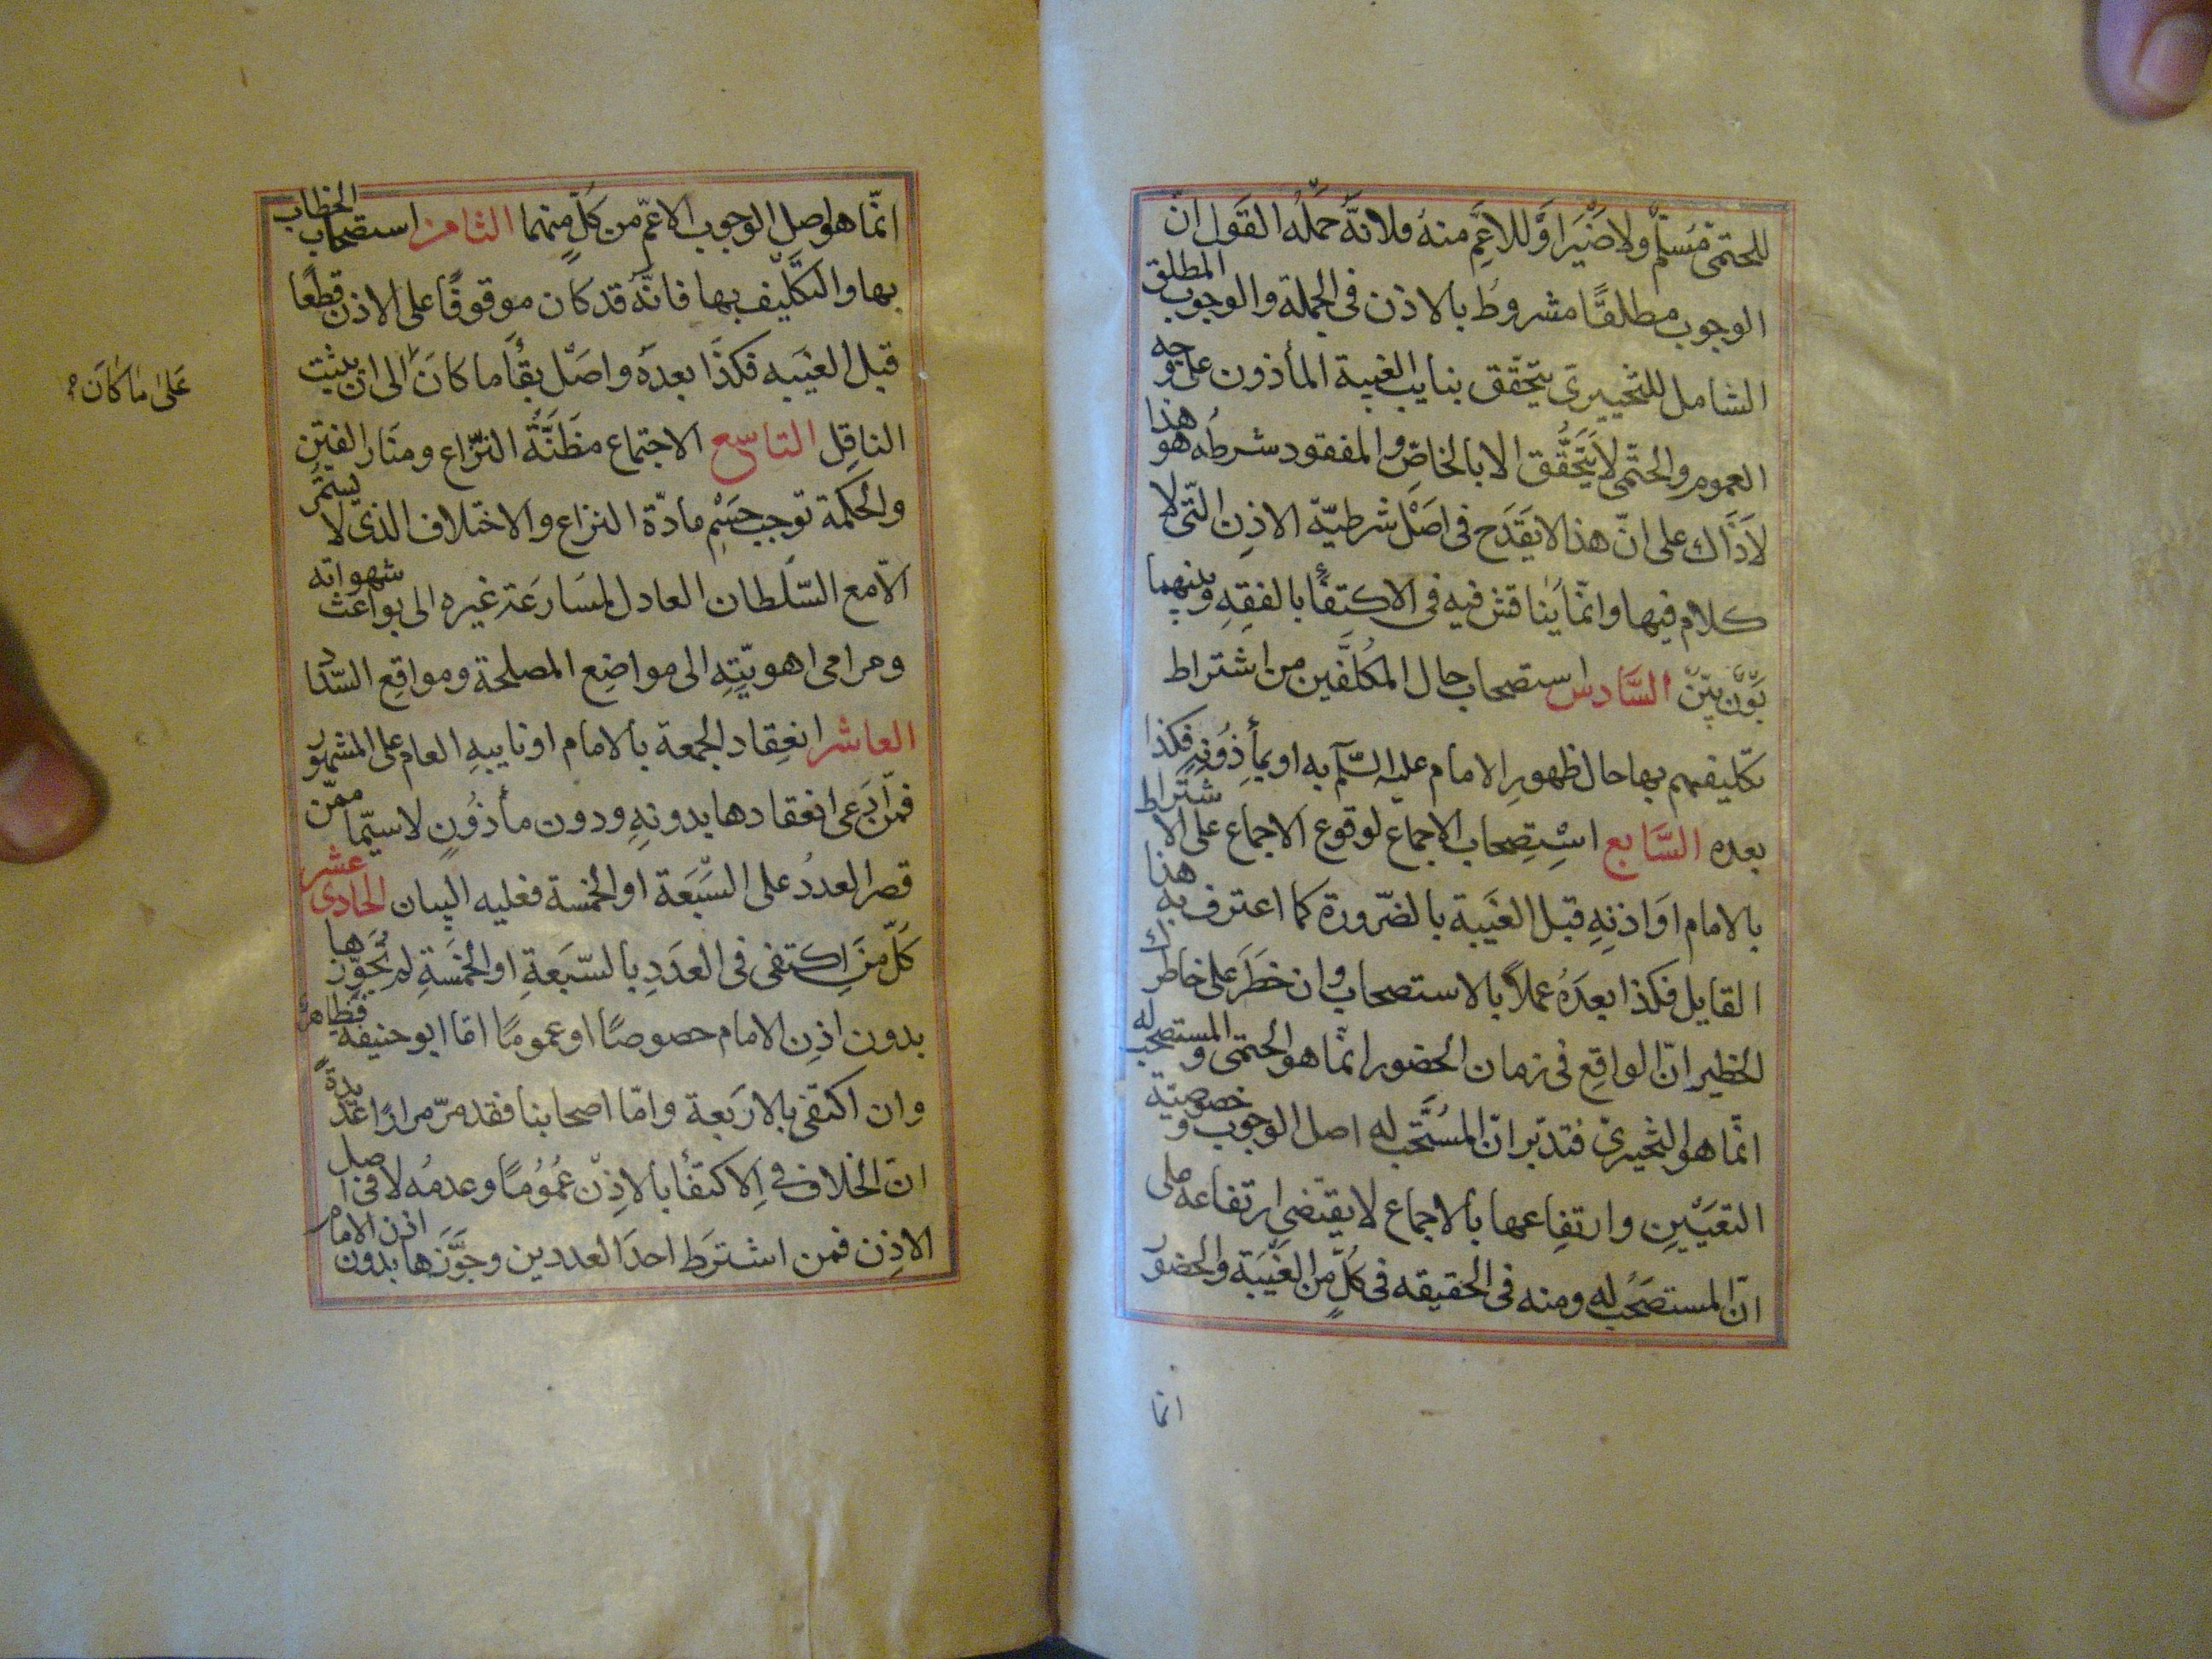 للحتمى مسلم ولا ضير او للاعم منه فلانه حمله القول ان
الوجوب مطلقا مشروط بالاذن فى الجملة والوجوب المطلق
الشامل للتخييرى يتحقق بنايب الغيبة المأذون على وجه
العموم والحتمى لا يتحقق الا بالخاص والمفقود شرطه هو هذا
لا ذاك على انّ هذا لا يقدح فى اصل شرطيّة الاذن التى لا
كلام فيها وانّما يناقش فيه فى الاكتفأ بالفقه وبينهما
بون بيّن السَّادس استصحاب حال المكلَّفين من اشتراط
تكليفهم بها حال ظهور الامام عليه السّلم به او بمأذونه فكذا
بعده السَّابع استصحاب الاجماع لوقوع الاجماع على الاشتراط
بالامام او اذنه قبل الغيبة بالضّرورة كما اعترف به هذا
القايل فكذا بعده عملاً بالاستصحاب وان خطر على خاطرك
الخطير انّ الواقع فى زمان الحضور انّما هو الحتمى والمستصحب له
انّما هو التخييرىّ فتدبّر انّ المستصحب له اصل الوجوب وخصوصيّة
التعيين وارتفاعها بالاجماع لا يقتضى ارتفاعه على
انّ المستصحب له ومنه فى الحقيقه فى كلٍّ من الغيبة والحضور
انما
انّما هو اصل الوجوب الاعمّ من كلٍّ منهما الثامن استصحاب الخطاب
بها والتكليف بها فانّه قد كان موقوفًا على الاذن قطعًا
قبل الغيبه فكذا بعده واصل بقأ ما كان الى ان يثبت
على ما كان
الناقل التاسع الاجتماع مظنّة النزاع ومثار الفتن
والحكمة توجب حسم مادّة النزاع والاختلاف الذى لا يستمر
الّا مع السّلطان العادل لمسارعة غيره الى بواعث شهواته
ومرامى اهويّته الى مواضع المصلحة ومواقع السّداد
العاشر انعقاد الجمعة بالامام او نايبه العام على المشهور
فمن ادعى انعقادها بدونه ودون مأذون لاسيّما ممّن
قصر العدد على السّبعة او الخمسة فعليه البيان الحادى عشر
كلّ من اكتفى فى العدد بالسّبعة او الخمسة لم يجوّزها
بدون اذن الامام خصوصًا او عمومًا امّا ابو حنيفه فظاهر
وان اكتفى بالاربعة وامّا اصحابنا فقد مرّ مرارًا عديدة
انّ الخلاف فى الاكتفأ بالاذن عمومًا وعدمه لا فى اصل
الاذن فمن اشترط احد العددين وجوّزها بدون اذن الامام